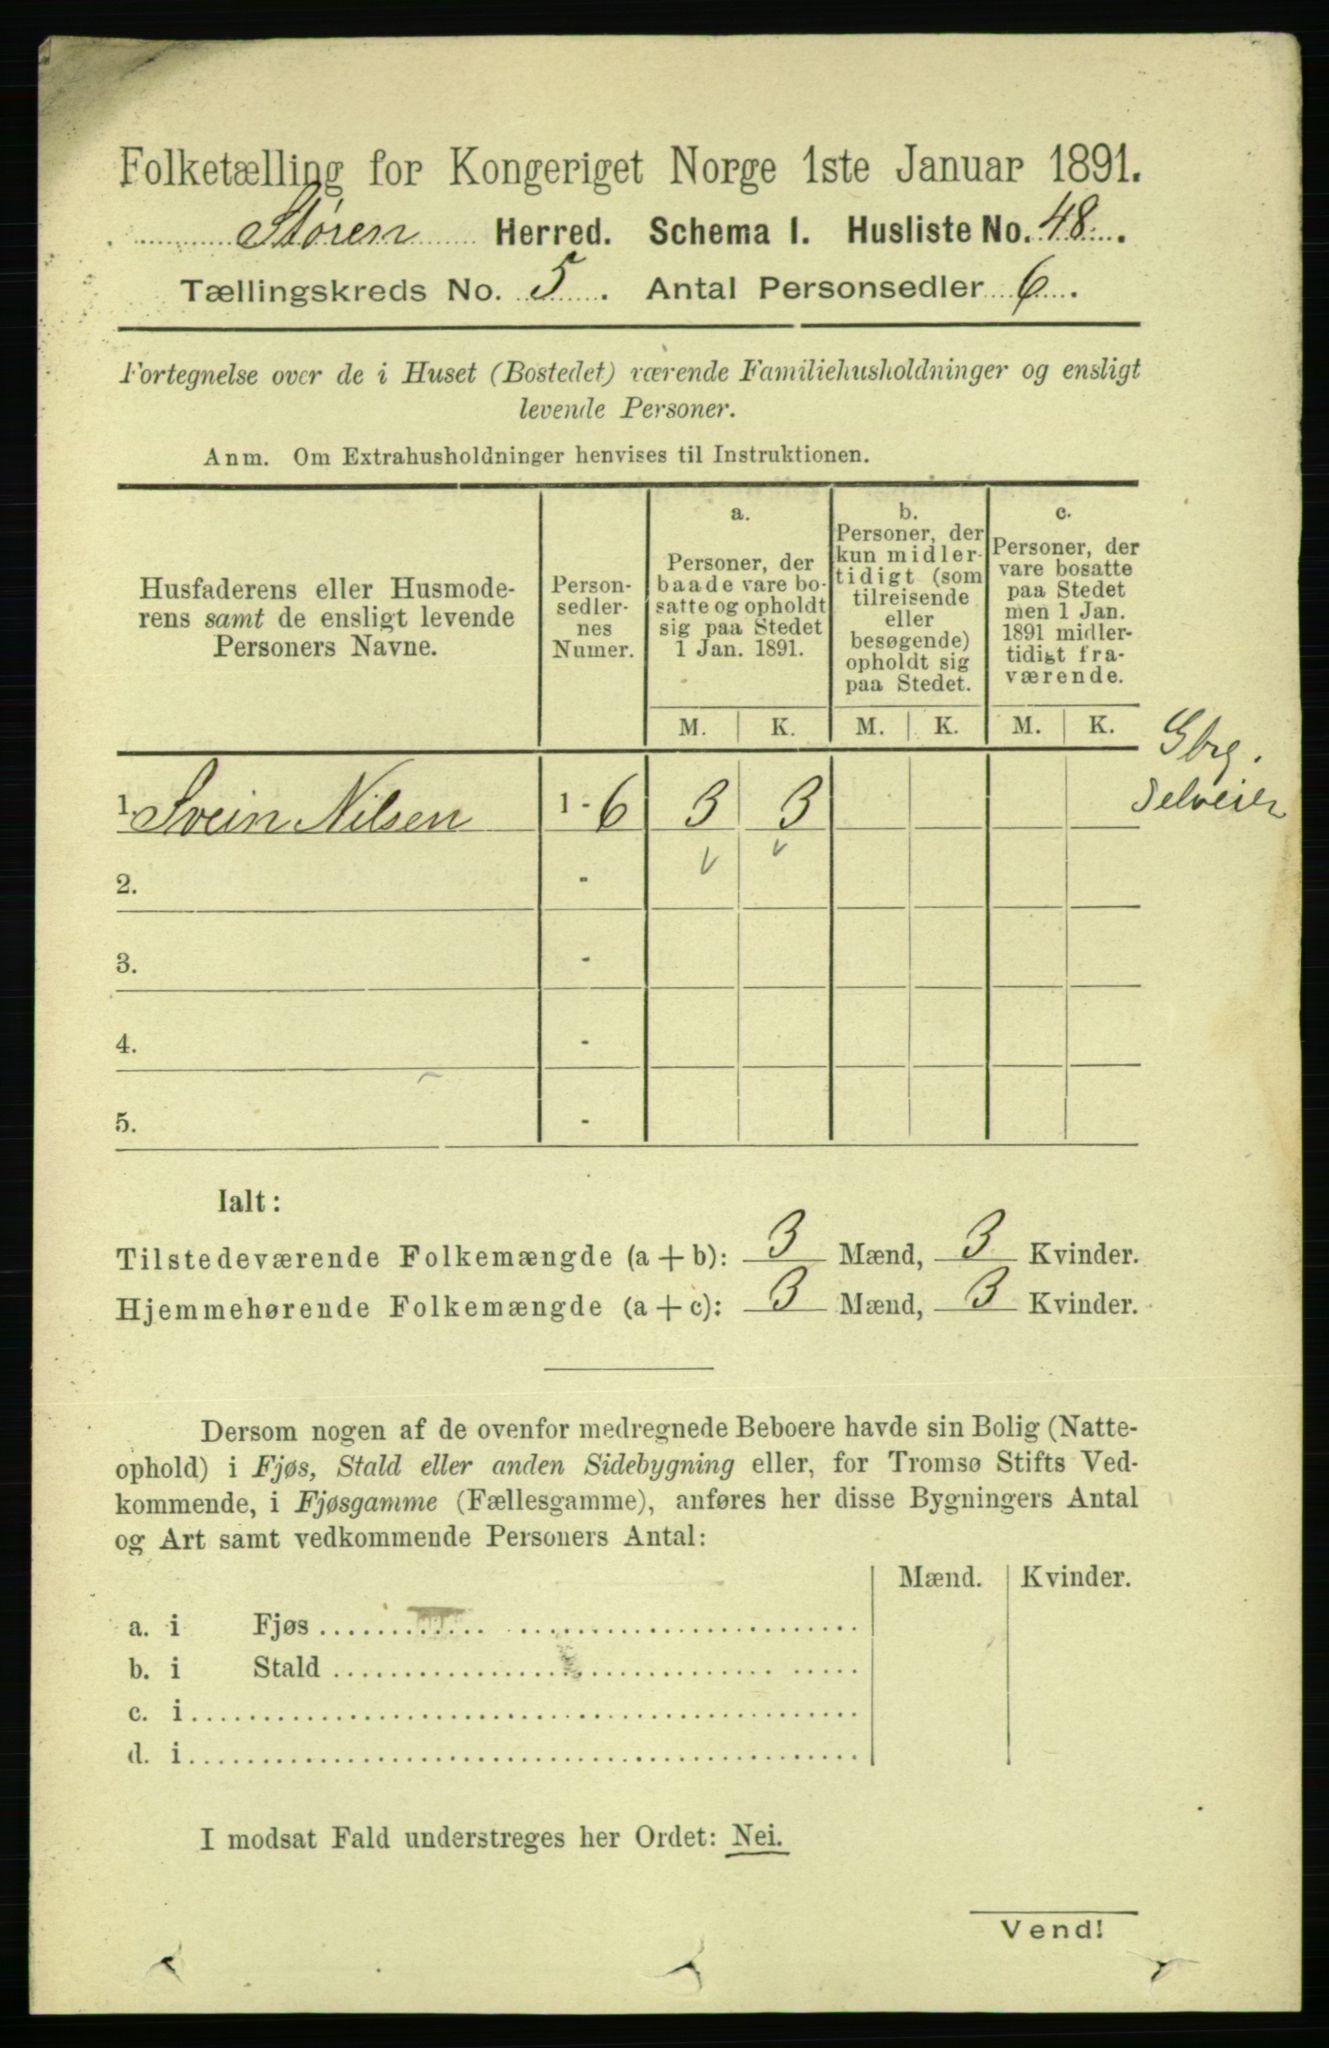 Folketælling for Kongeriget Norge 1ste Januar 1891.
Støren Herred. Schema 1. Husliste No. 48.
Tællingskreds No. 5. Antal Personsedler 6.
Fortegnelse over de i Huset (Bostedet) værende Familiehusholdninger og ensligt
levende Personer.
Anm. Om Extrahusholdninger henvises til Instruktionen.
Husfaderens eller Husmode-
rens samt de ensligt levende
Personers Navne.
Person-
sedler-
nes
Numer.
a.
Personer, der
baade vare bo-
satte og opholdt
sig paa Stedet
1 Jan. 1891.
b.
Personer, der
kun midler-
tidigt (som
tilreisende
eller
besøgende)
opholdt sig
paa Stedet.
c.
Personer, der
vare bosatte
paa Stedet
men 1 Jan.
1891 midler-
tidigt fra-
værende.
M. K. M. K. M. K.
Gbrg.
Selveier
1. Svein Nilsen 1 - 6 3 3
2. -
3. -
4. -
5. -
Ialt:
Tilstedeværende Folkemængde (a + b): 3 Mænd, 3 Kvinder.
Hjemmehørende Folkemængde (a + c): 3 Mænd, 3 Kvinder.
Dersom nogen af de ovenfor medregnede Beboere havde sin Bolig (Natte-
ophold) i Fjøs, Stald eller anden Sidebygning eller, for Tromsø Stifts Ved-
kommende, i Fjøsgamme (Fællesgamme), anføres her disse Bygningers Antal
og Art samt vedkommende Personers Antal:
Mænd. Kvinder.
a. i Fjøs
b. i Stald
c. i
d. i
I modsat Fald understreges her Ordet: Nei.
Vend!